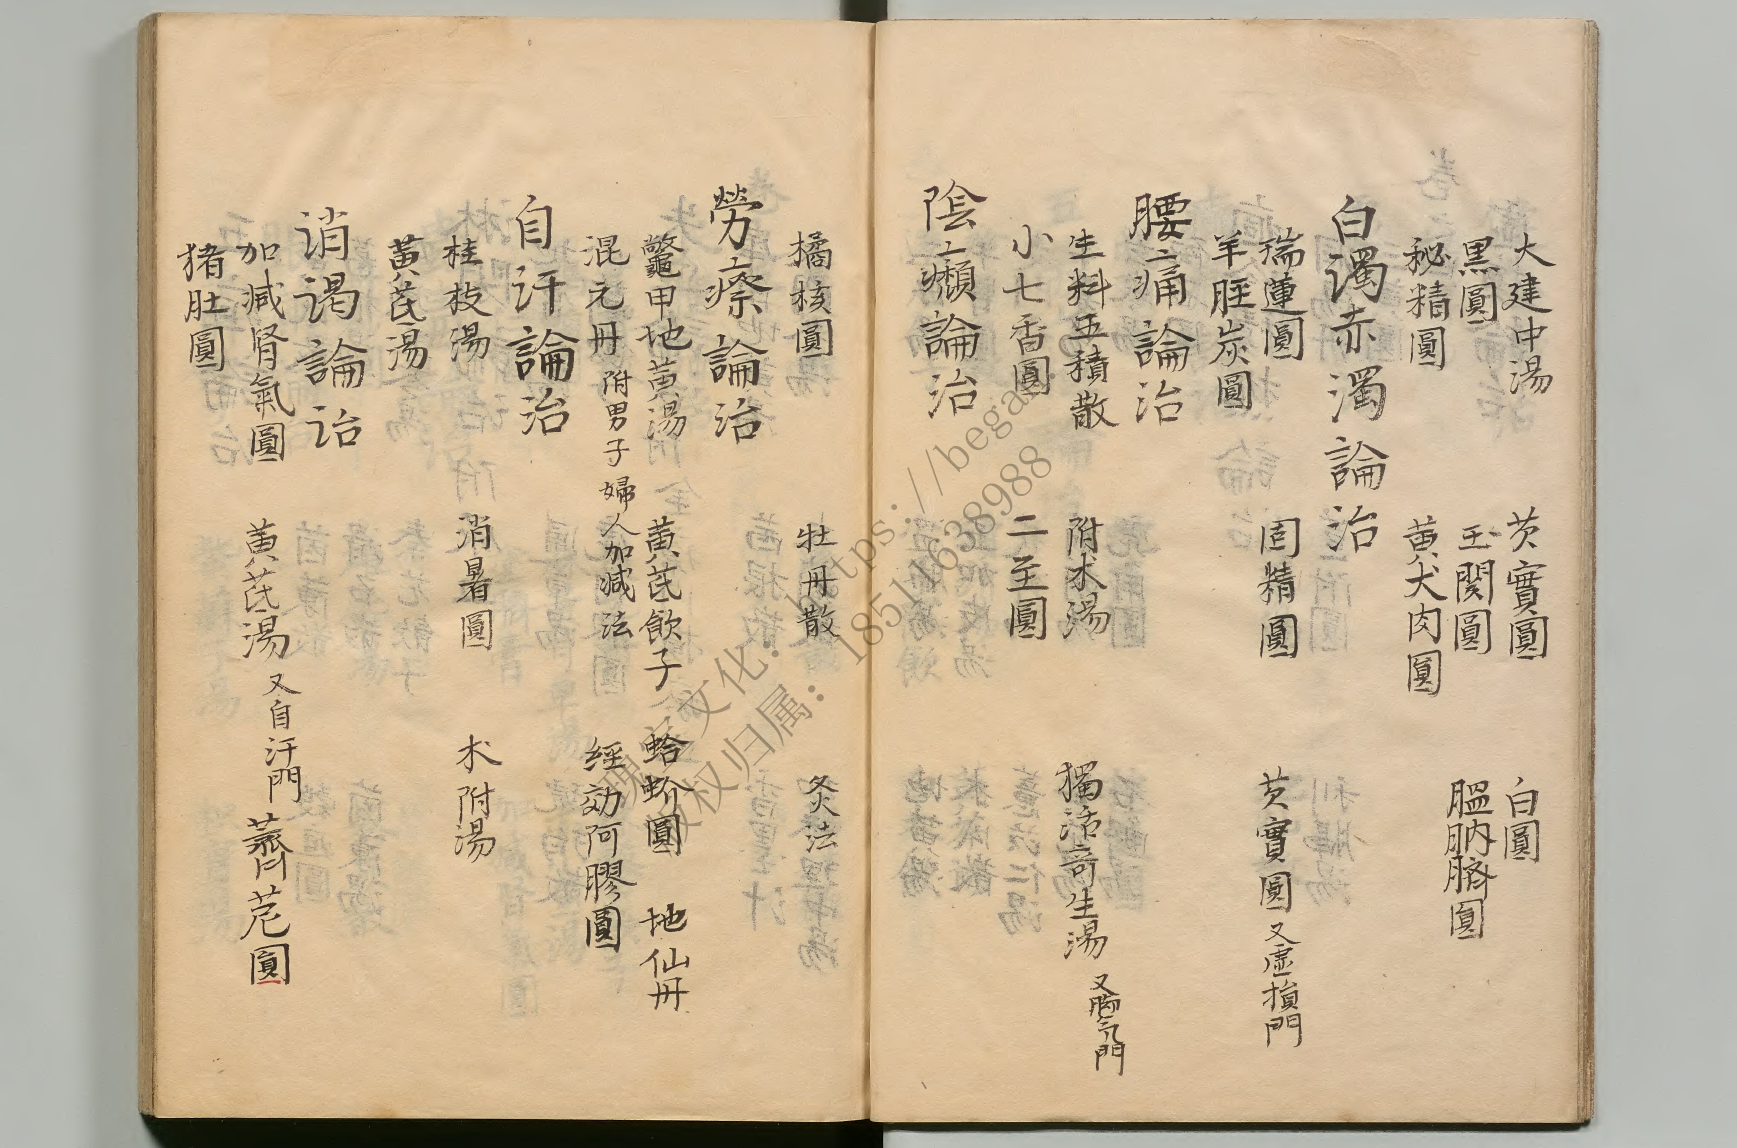 大建中湯 芡實圓 白圓
黑圓 玉関圓 膃肭臍圓
秘精圓 黄犬肉圓
白濁赤濁論治
瑞蓮圓 固精圓 芡實圓 又虚損門
羊脛炭圓
腰痛論治
生料五積散 附术湯 獨活寄生湯 又脚气門
小七香圓 二至圓
陰㿗論治
橘核圓 牡丹散 灸法
勞瘵論治
鼈甲地黄湯 黄芪飲子 蛤蚧圓 地仙丹
混元丹 附男子婦人加减法 經効阿膠圓
自汗論治
桂枝湯 消暑圓 术附湯
黃芪湯
消渴論治
加减腎氣圓 黄芪湯 又自汗門 薺苨圓
猪肚圓
https://bega
18511638988
文化:
权归属: